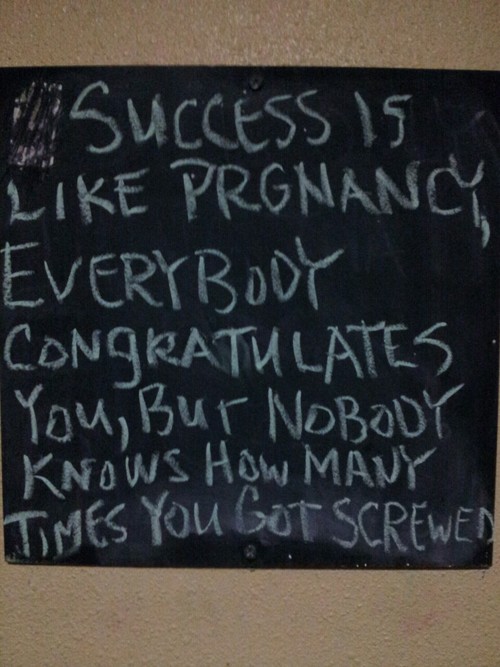 SUCCESS IS
LIKE PRGNANCY,
EVERYBODY
CONgRATULATES
YOU, BUT NOBODY
KNOWS HOW MANY
TIMES YOU GOT SCREWED